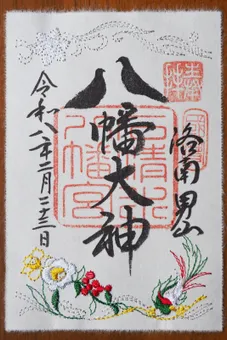 奉拝
洛南男山
八幡大神
石清水八幡宮
令和八年二月二十三日